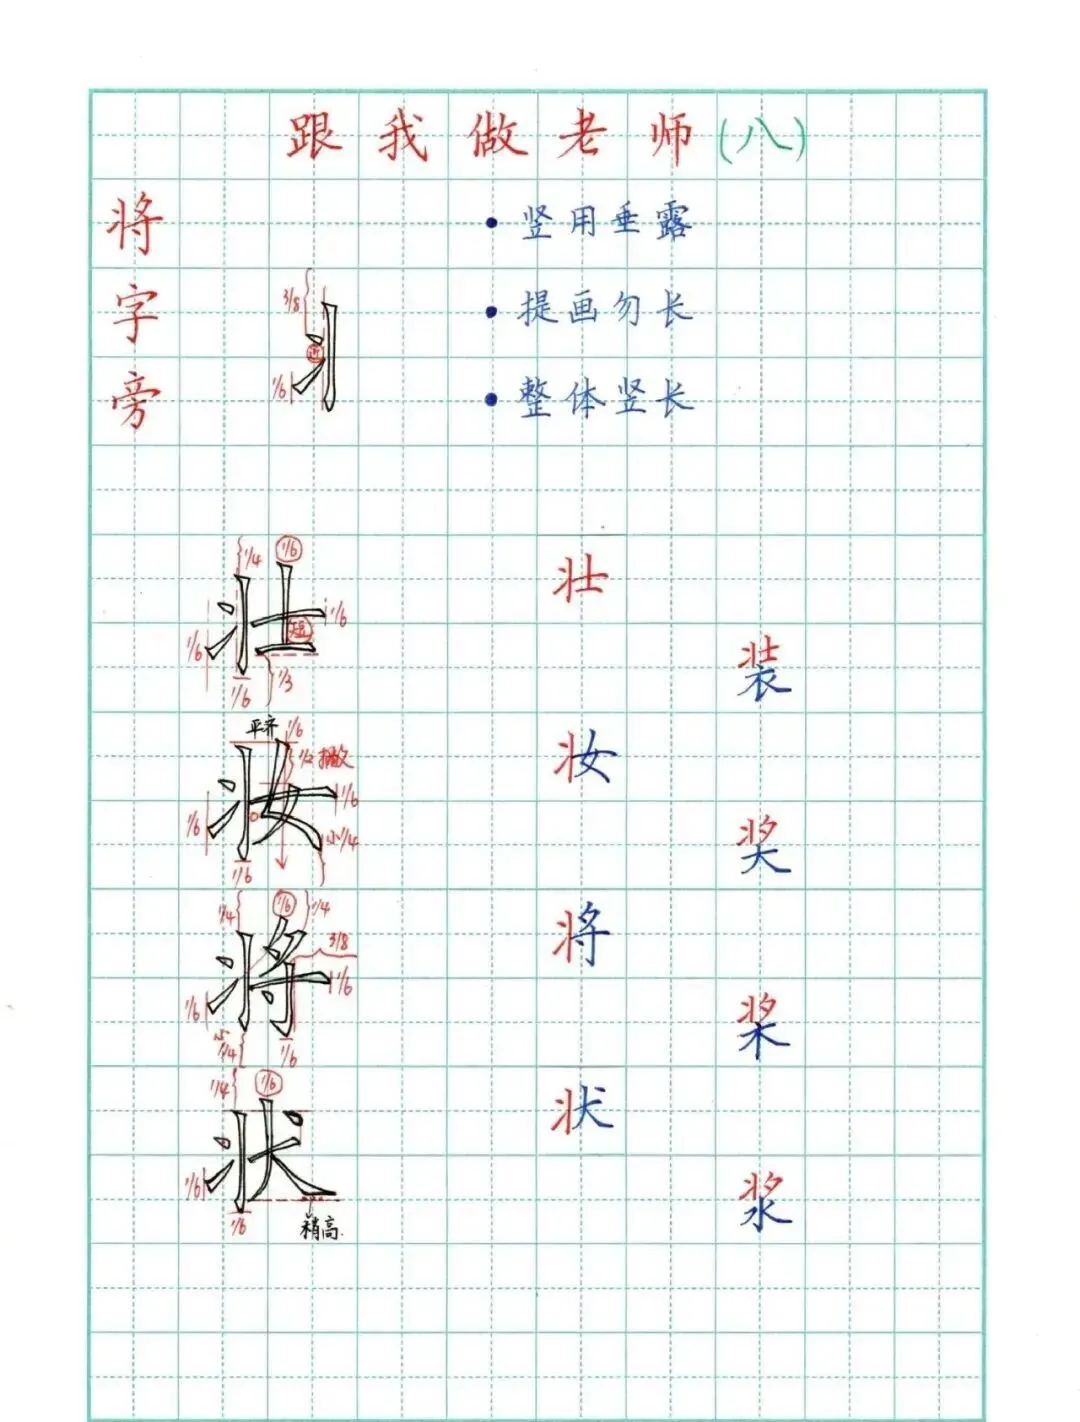 跟我做老师(八)
将字旁
• 竖用垂露
• 提画勿长
• 整体竖长
3/8
近
1/6
丬
1/4
1/6
壮
1/6
短
1/6
1/6
1/3
壮
装
平齐
1/6
1/2 撇
妆
1/6
1/6
小1/4
1/6
妆
奖
1/4
1/6
1/4
3/8
将
1/6
1/6
小1/4
1/6
将
桨
1/4
1/6
状
1/6
1/6
稍高
状
浆